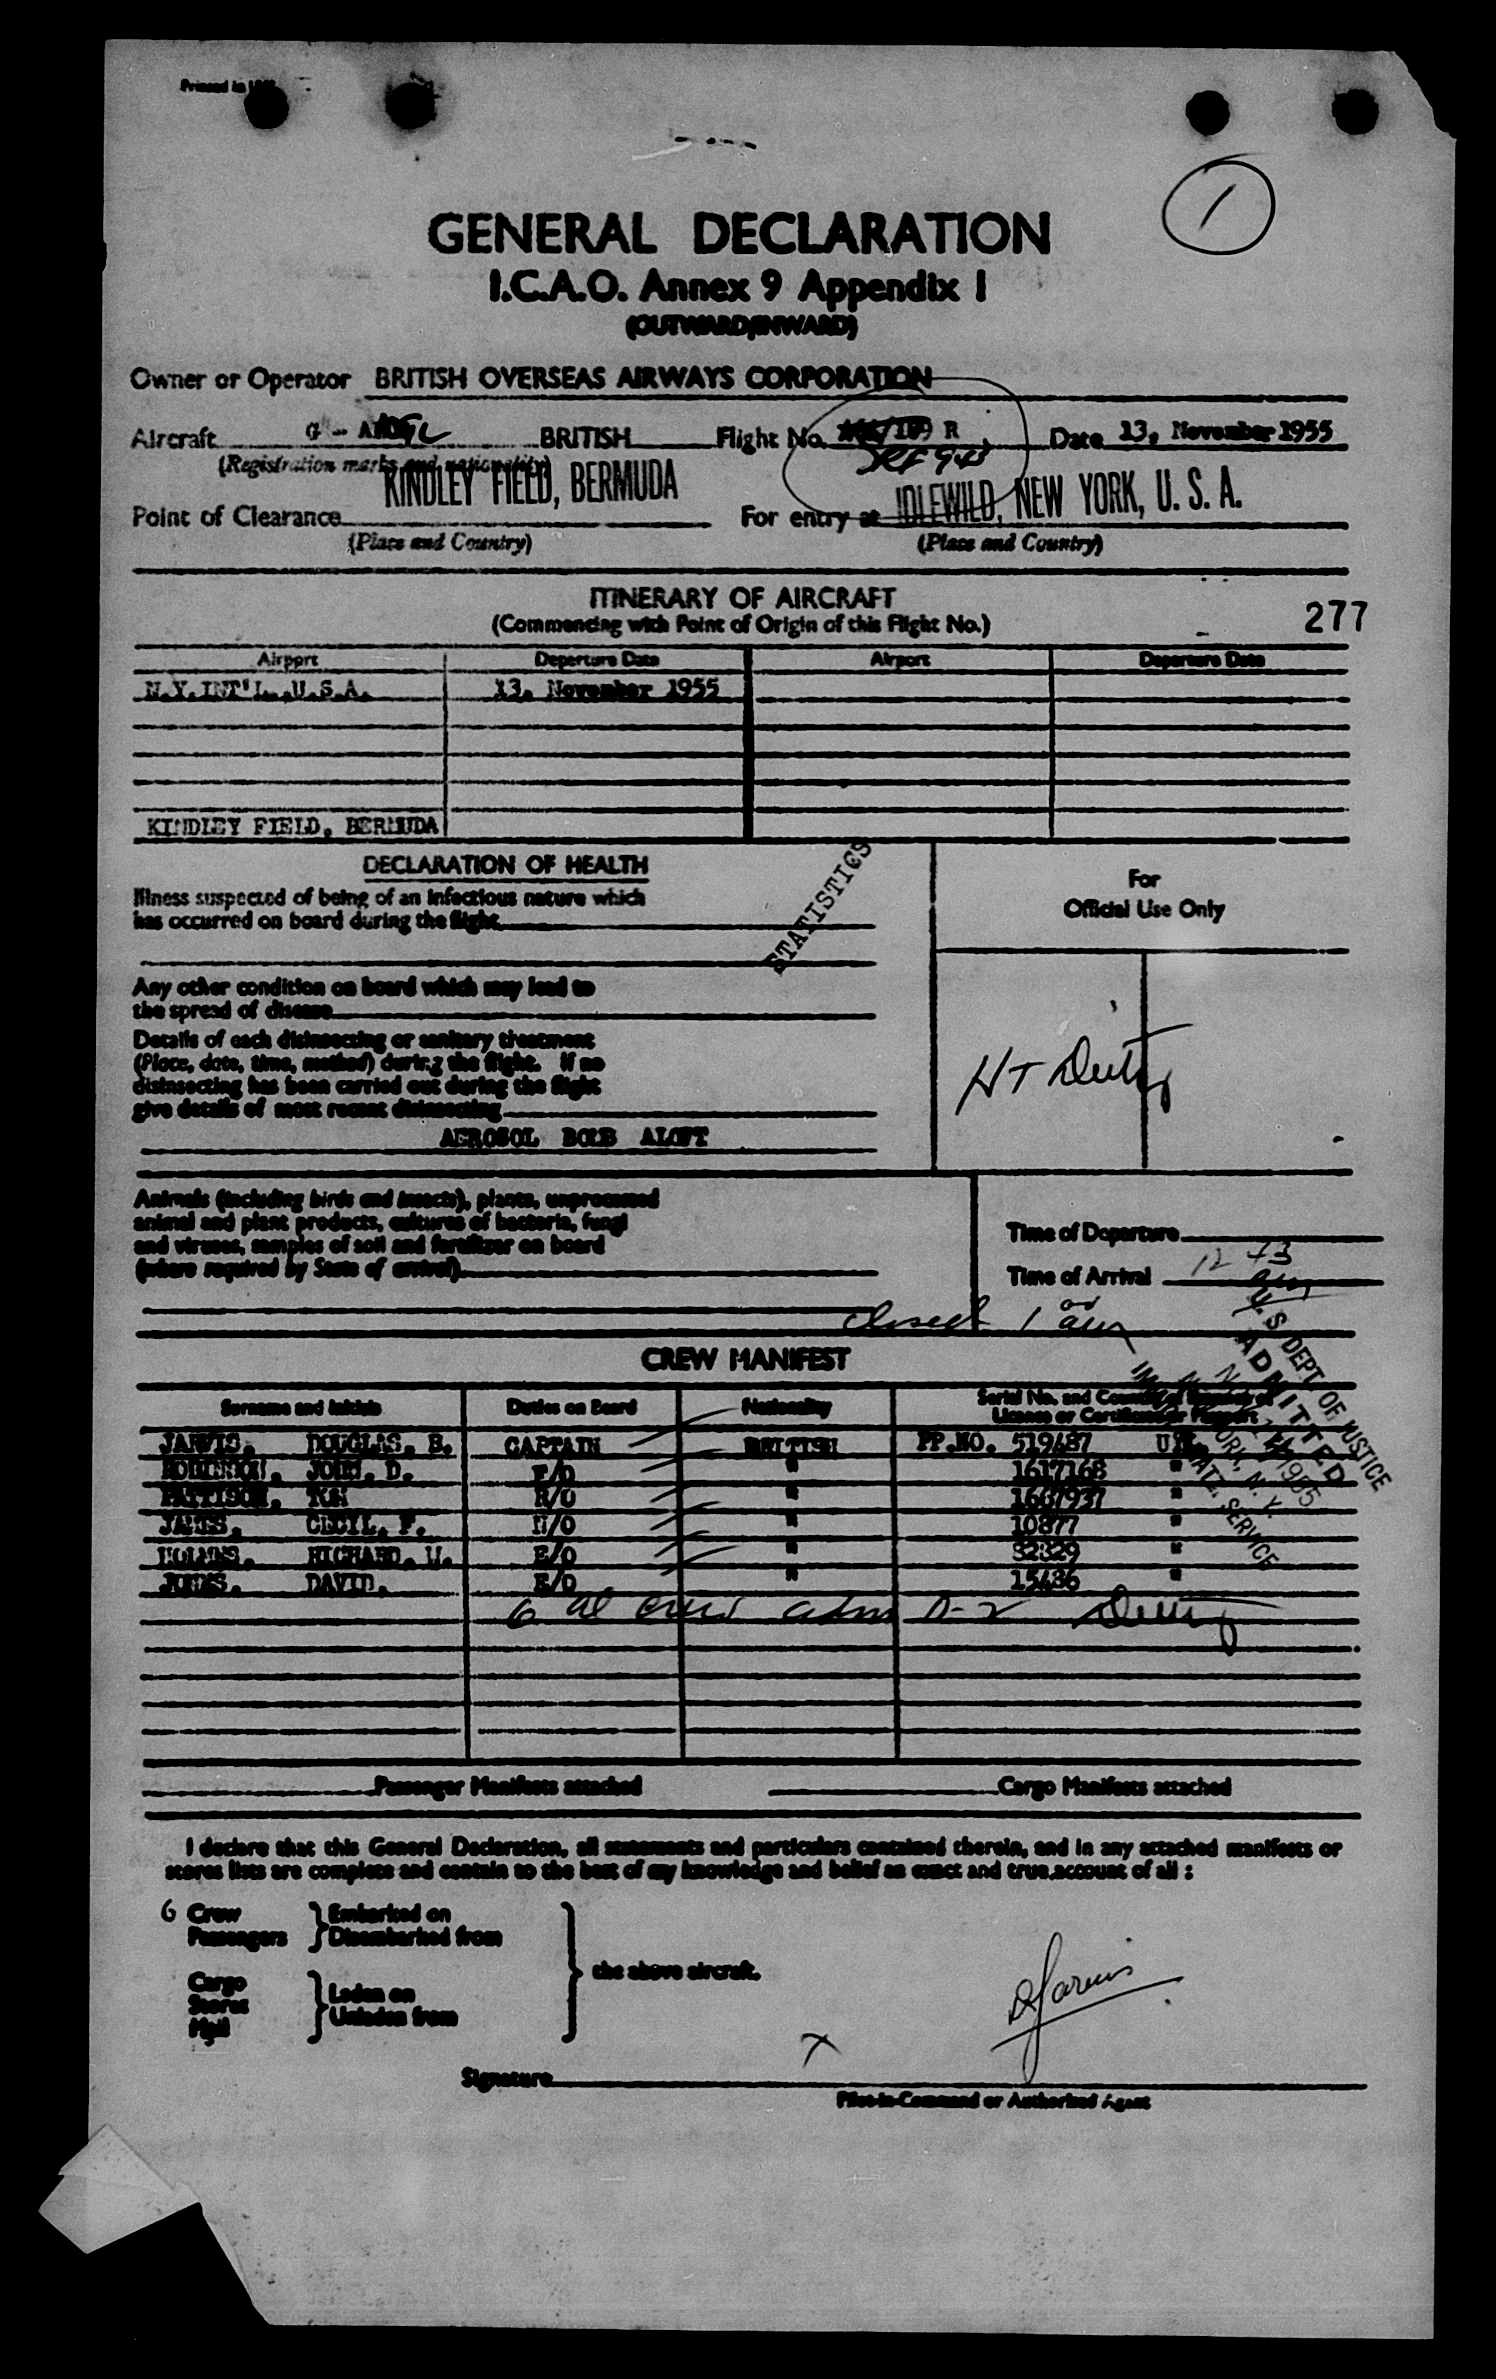 Printed in
1
GENERAL DECLARATION
I.C.A.O. Annex 9 Appendix I
(OUTWARD/INWARD)
Owner or Operator BRITISH OVERSEAS AIRWAYS CORPORATION
Aircraft G - A BRITISH Flight No. R Date 13, November 1955
(Registration marks and nationality)
Point of Clearance KINDLEY FIELD, BERMUDA For entry at IDLEWILD, NEW YORK, U. S. A.
(Place and Country) (Place and Country)
ITINERARY OF AIRCRAFT
(Commencing with Point of Origin of this Flight No.) 277
Airport Departure Date Airport Departure Date
N.Y.INT'L.,U.S.A. 13, November 1955
KINDLEY FIELD, BERMUDA
DECLARATION OF HEALTH
STATISTICS
For
Official Use Only
Illness suspected of being of an infectious nature which
has occurred on board during the flight
Any other condition on board which may lead to
the spread of disease
Details of each disinsecting or sanitary treatment
(Place, date, time, method) during the flight. If no
disinsecting has been carried out during the flight
give details of most recent disinsecting
AEROSOL BOMB ALOFT
Animals (including birds and insects), plants, unprocessed
animal and plant products, cultures of bacteria, fungi
and viruses, samples of soil and fertilizer on board
(where required by State of arrival)
Time of Departure
Time of Arrival 12 43 am
Closed 1 00 am
CREW MANIFEST
U. S DEPT OF JUSTICE
ADMITTED
Surname and Initials Duties on Board Nationality Serial No. and Country of
License or Certificate or Passport
JARVIS. DOUGLAS. B. CAPTAIN BRITISH PP.NO. 519487
JOHN. D. F/O " 1617168 "
PATTISON. TOM R/O " 1667937 "
JAMES. CECYL. F. N/O " 10877 "
RICHARD. E/O " 32329 "
JONES. DAVID. E/O " 15486 "
6 crew adm D-2
Passenger Manifests attached Cargo Manifests attached
I declare that this General Declaration, all statements and particulars contained therein, and in any attached manifests or
stores lists are complete and contain to the best of my knowledge and belief an exact and true account of all :
6 Crew Embarked on
Passengers Disembarked from
the above aircraft.
Cargo
Stores
Mail
Laden on
Unladen from
DJarvis
X
Signature
Pilot-in-Command or Authorised Agent